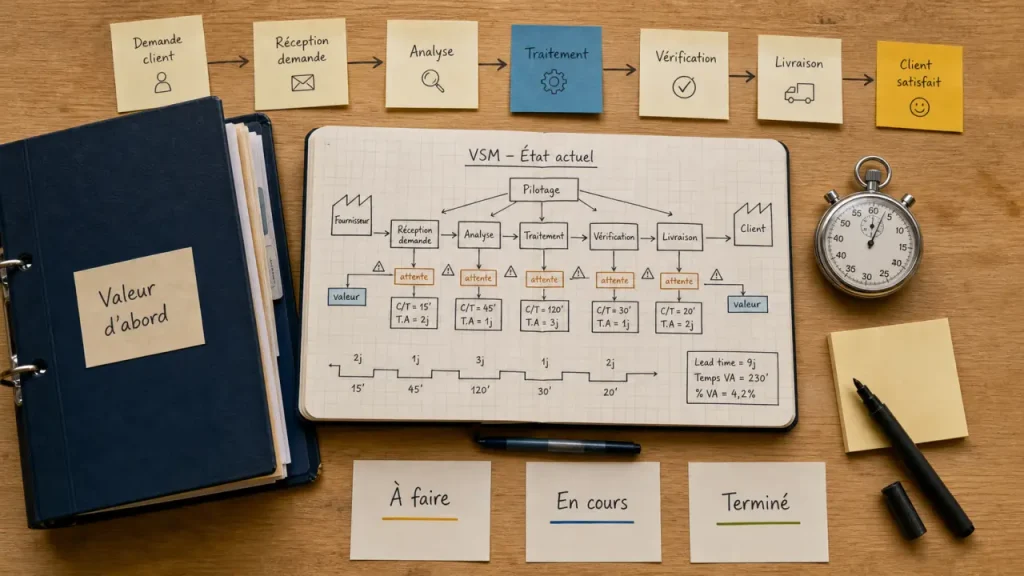 Demande
client
Réception
demande
Analyse
Traitement
Vérification
Livraison
Client
satisfait
Valeur
d'abord
VSM – État actuel
Pilotage
Fournisseur
Réception
demande
Analyse
Traitement
Vérification
Livraison
Client
attente
attente
attente
attente
attente
valeur
valeur
C/T = 15'
T.A = 2j
C/T = 45'
T.A = 1j
C/T = 120'
T.A = 3j
C/T = 30'
T.A = 1j
C/T = 20'
T.A = 2j
2j
1j
3j
1j
2j
15'
45'
120'
30'
20'
Lead time = 9j
Temps VA = 230'
% VA = 4,2%
60
5
10
15
20
25
30
35
40
45
50
55
À faire
En cours
Terminé